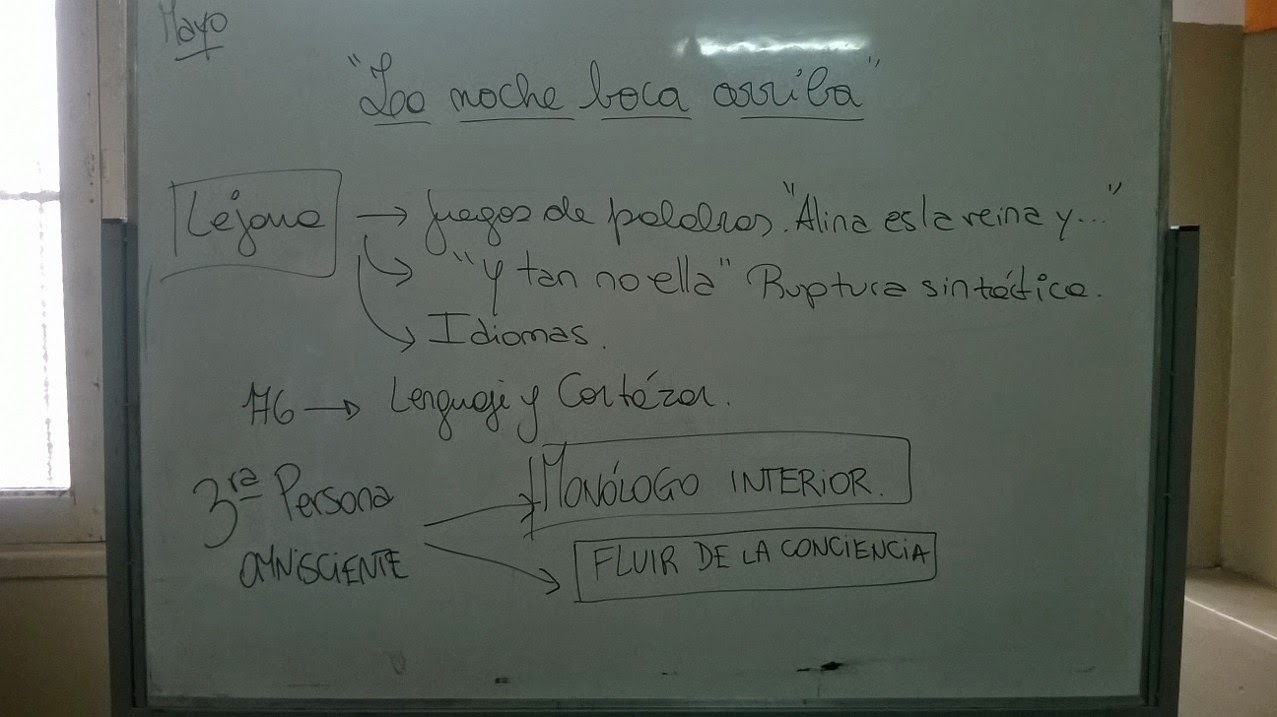 Mayo
"La noche boca arriba"
Lejana → Juegos de palabras. "Alina es la reina y..."
"Y tan no ella" Ruptura sintáctica.
Idiomas.
→ Lenguaje y Cortázar.
3ra Persona
OMNISCIENTE
MONÓLOGO INTERIOR.
FLUIR DE LA CONCIENCIA